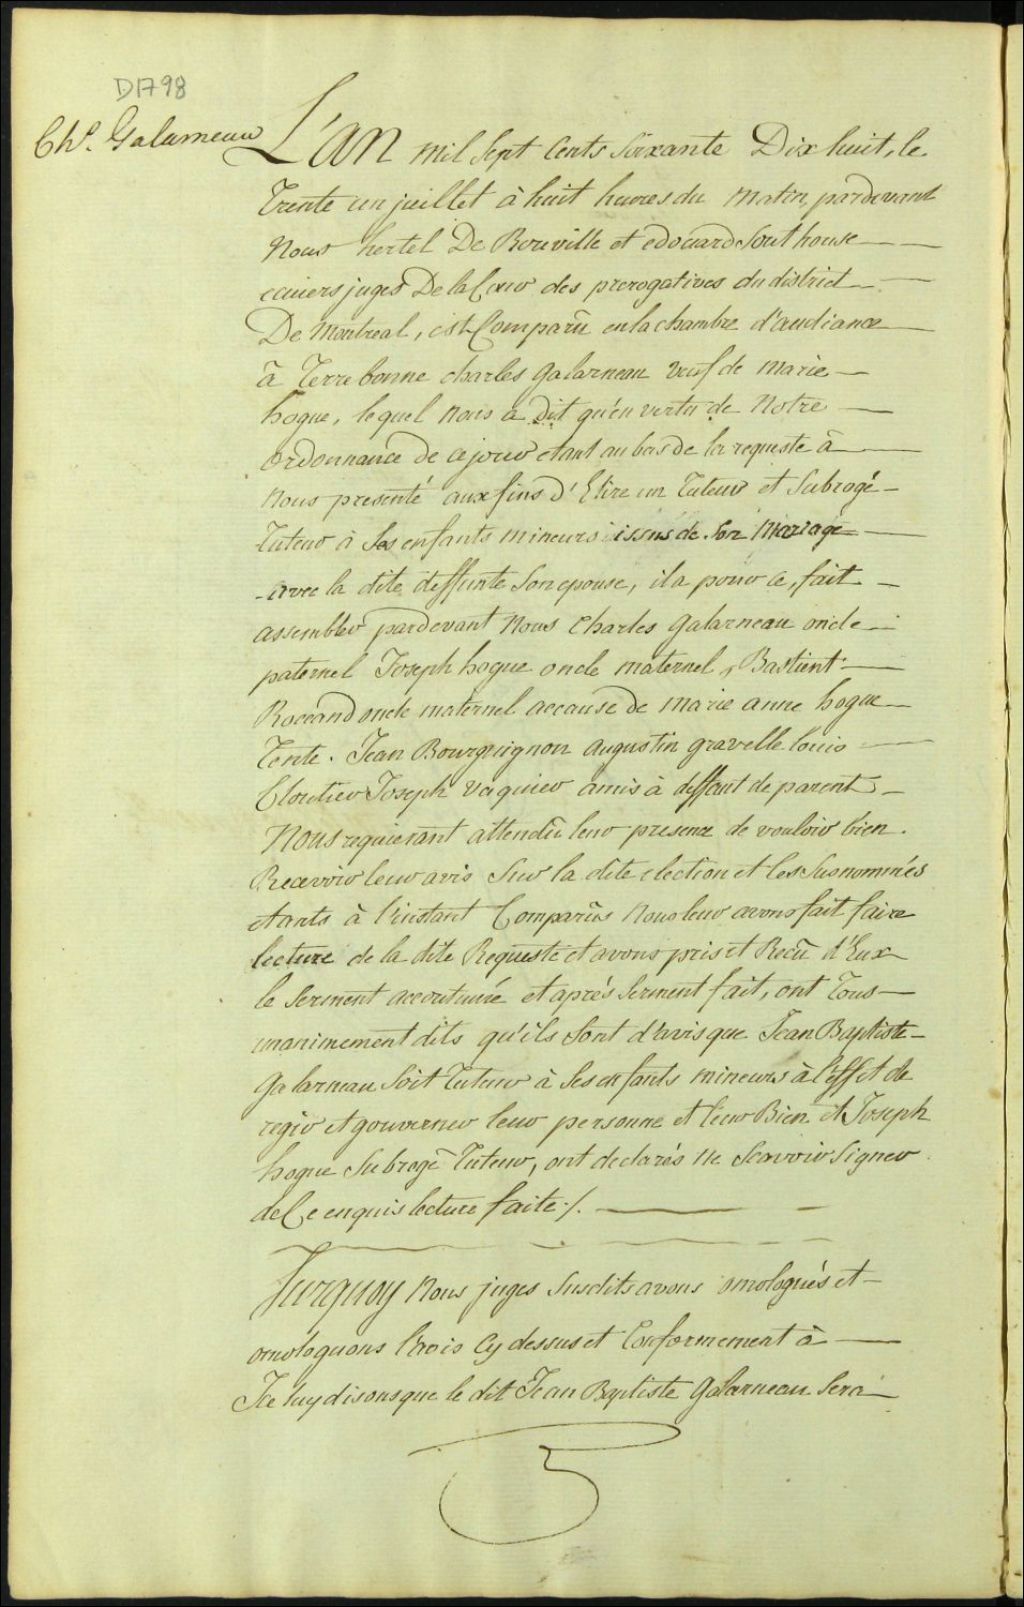 D1798
Chs. Galarneau
L'an mil sept Cents soixante Dix huit, le
Trente un juillet à huit heures du matin, pardevant
Nous hertel De Rouville et edouard Southouse
ecuiers juges De la Cour des prerogatives du district
De Montreal, est Comparû en la chambre d'audiance
à Terrebonne charles galarneau veuf de marie
hogue, lequel nous a dit qu'en vertu de Notre
ordonnance de ce jour etant au bas de la requeste à
Nous presenté aux fins d'Elire un Tuteur et Subrogé
Tuteur à Ses enfants mineurs issus de Son Mariage
avec la dite deffunte Son epouse, il a pour ce, fait
assembler pardevant Nous Charles galarneau oncle
paternel Joseph hogue oncle maternel, Bastient
Roccand oncle maternel accause de marie anne hogue
Tente. Jean Bourguignon augustin gravelle louis
Cloutier Joseph vaquier amis à deffaut de parent
Nous requierant attendû leur presence de vouloir bien
Recevoir leur avis Sur la dite election et les Susnommés
etants à l'instant Comparûs Nous leur avons fait faire
lecture de la dite Requeste et avons pris et Recû d'Eux
le Serment accoutumé et aprés Serment fait, ont Tous
unanimement dits qu'ils Sont d'avis que Jean Baptiste
galarneau Soit Tuteur à Ses enfants mineurs à l'Effet de
regir et gouverner leur personne et leur Bien et Joseph
hogue Subrogé Tuteur, ont declarés ne Scavoir Signer
de Ce enquis lecture faite ./.
Surquoy Nous juges Susdits avons omologués et
omologuons l'avis Cy dessus et Conformement à
Iceluy disons que le dit Jean Baptiste galarneau Sera